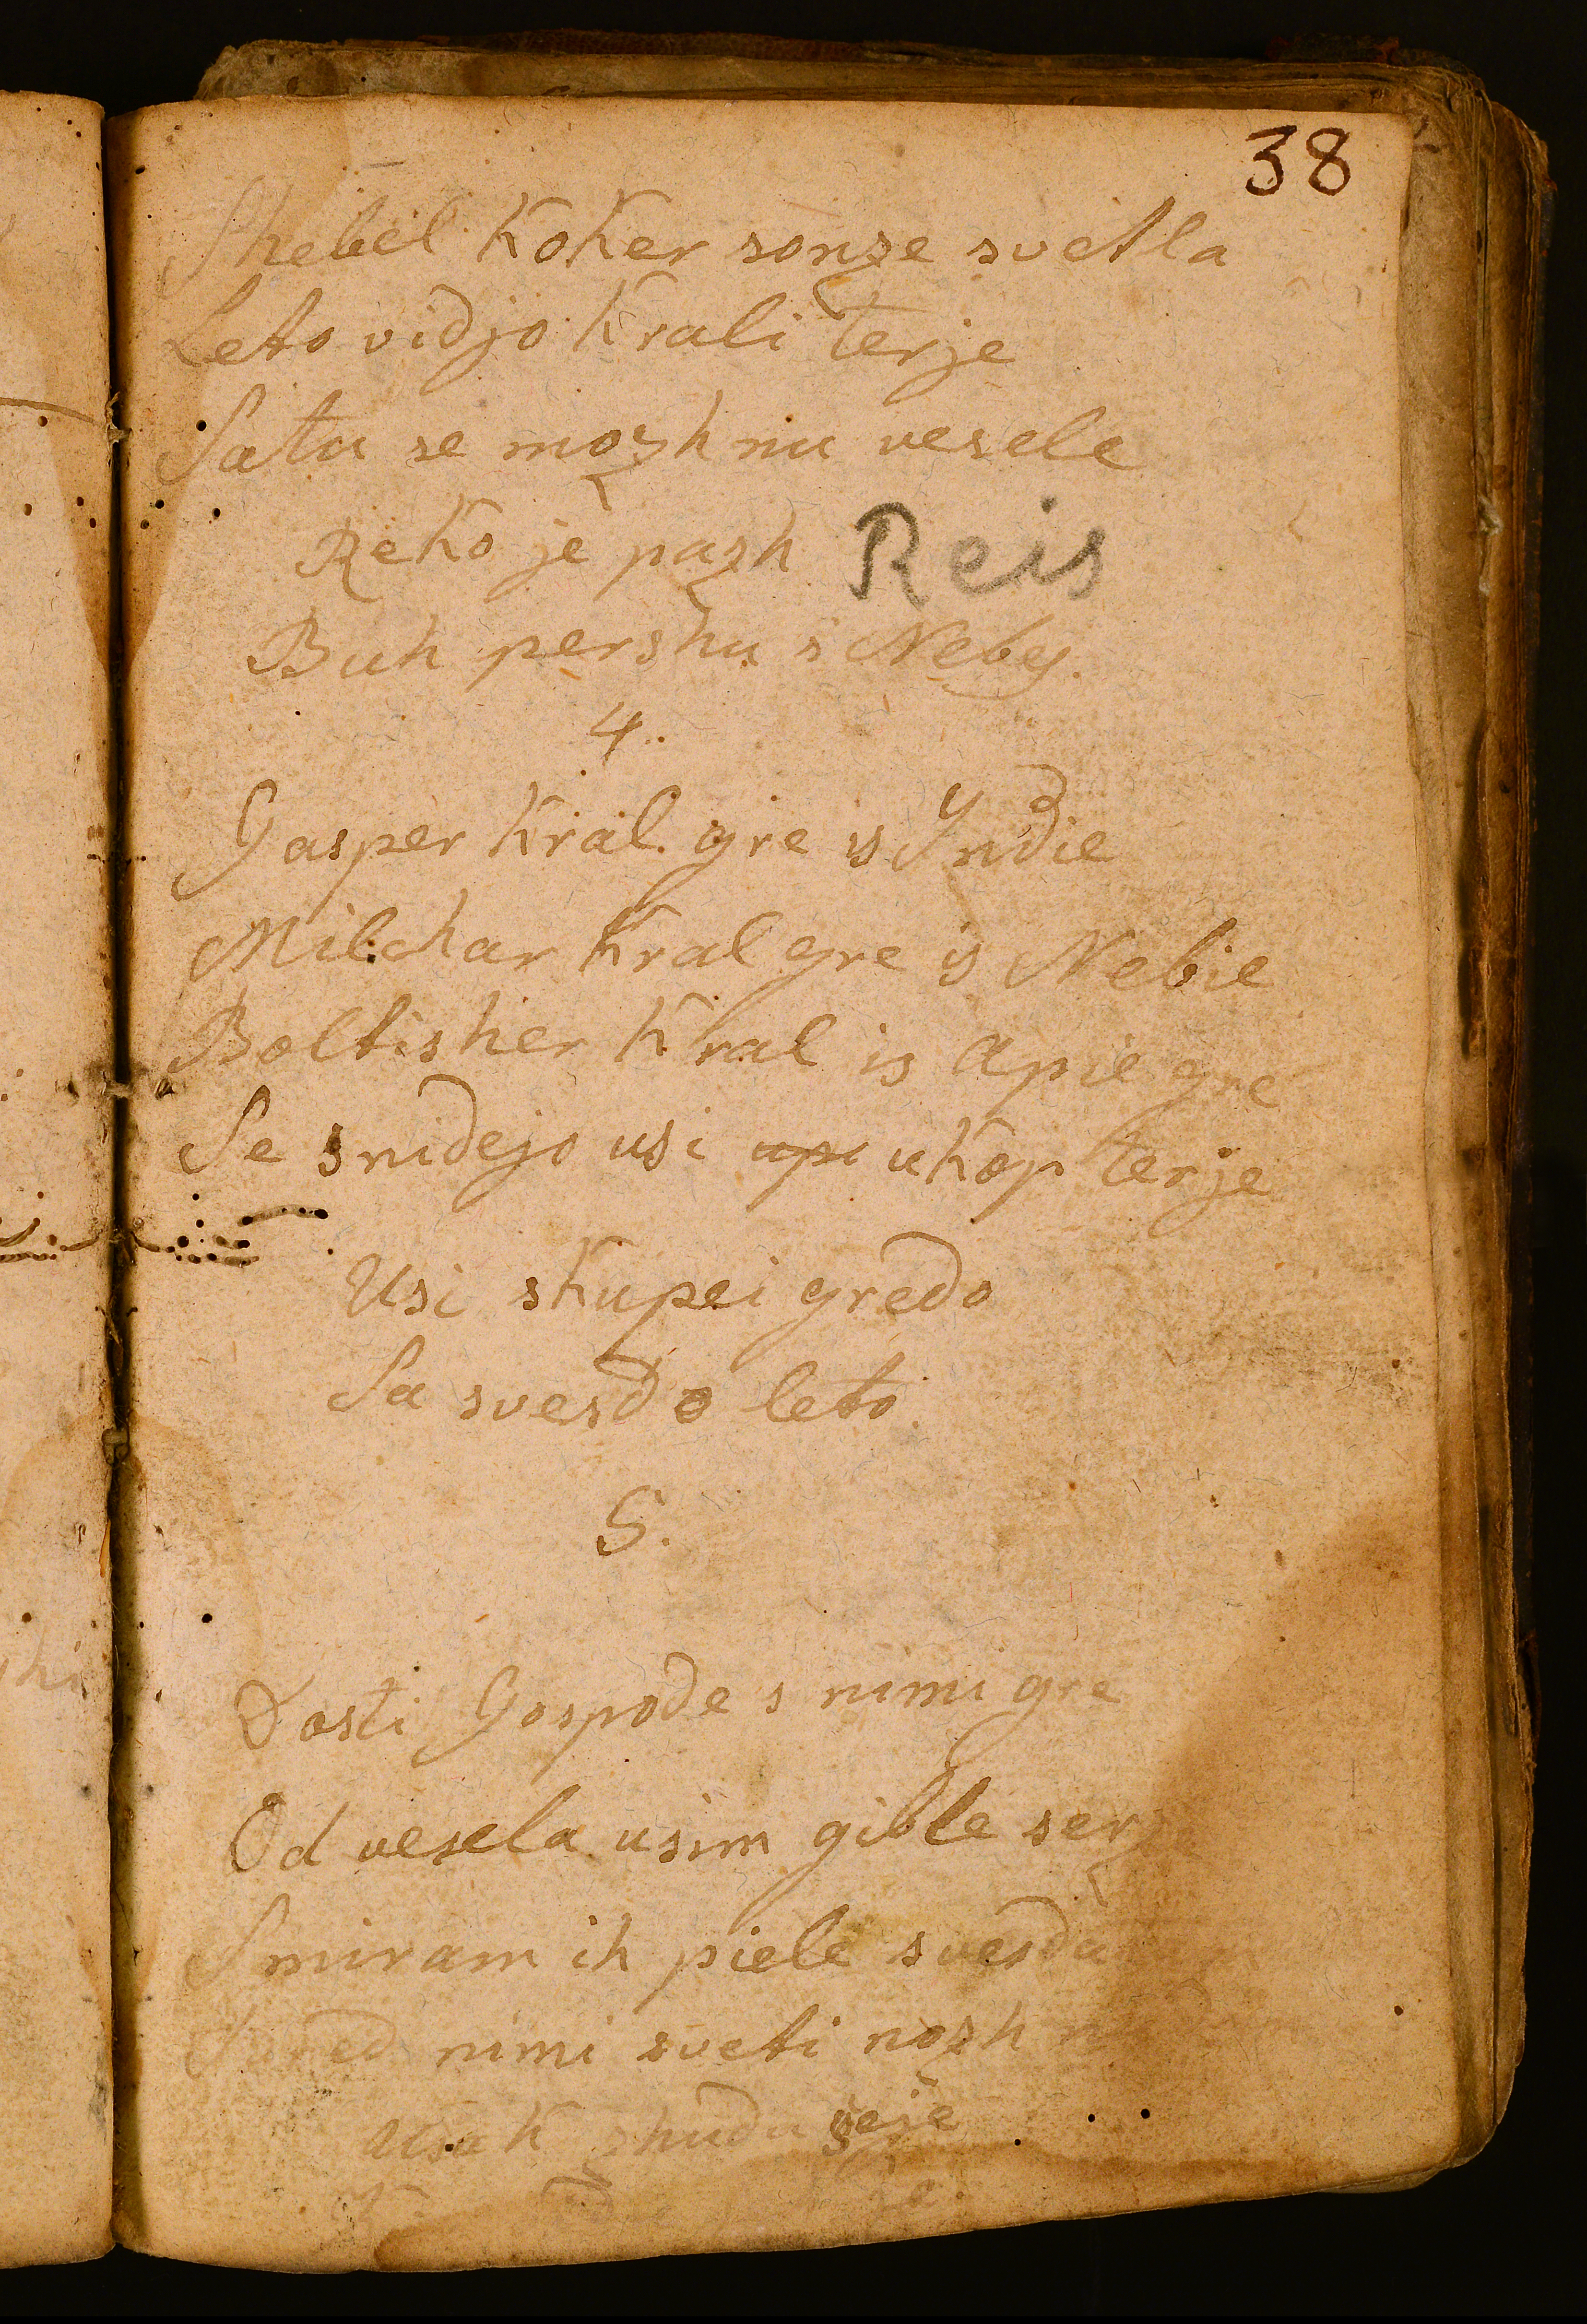 38
Shebel koker sonze svetla
Leto vidjo krali terje
Satu se mozh nu vesele
Reko je pazh Reis
Buh pershu s Nebes.
4.
Gasper kral gre is Yndie
Milchar kral gre is Nebie
Boltisher kral is Apie gre
Se snidejo usi upi ukop terje
Usi skupei gredo
Sa svesdo leto.
5.
Dosti Gospode s nimi gre
Od vesela usim gible serz
Smiram ih piele svesda
Pured nimi sveti nozh
usak zhudu seje